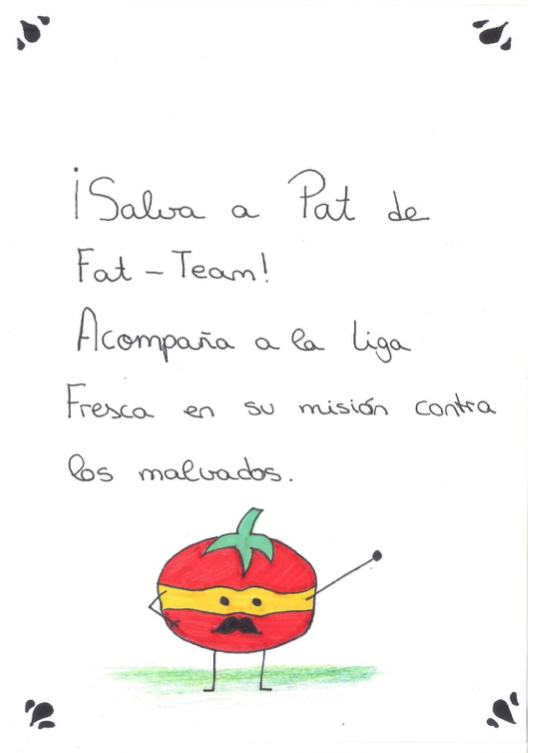 ¡Salva a Pat de
Fat-Team!
Acompaña a la liga
Fresca en su misión contra
los malvados.